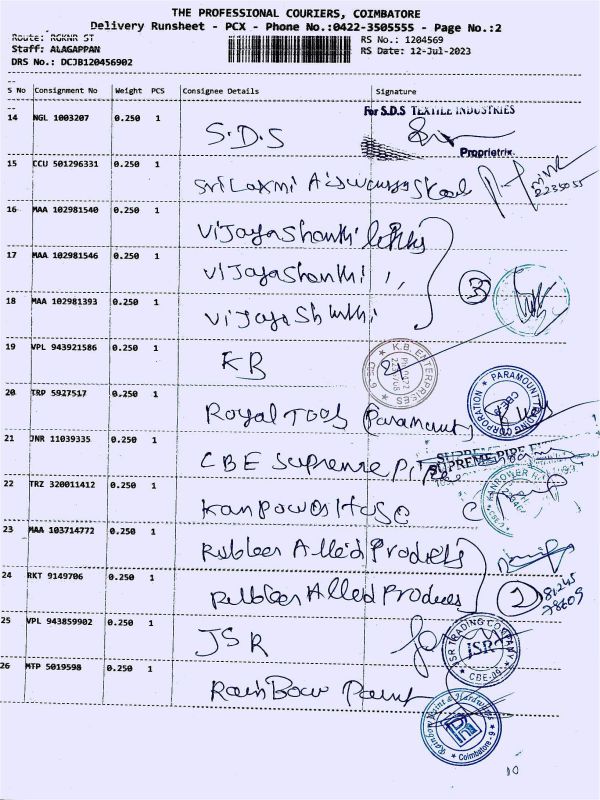 THE PROFESSIONAL COURIERS, COIMBATORE
Delivery Runsheet - PCX - Phone No.:0422-3505555 - Page No.:2
Route: RGKNR ST
RS No.: 1204569
Staff: ALAGAPPAN
RS Date: 12-Jul-2023
DRS No.: DCJB120456902
S No Consignment No Weight PCS Consignee Details Signature
14 NGL 1003207 0.250 1 S.D.S
For S.D.S TEXTILE INDUSTRIES
Proprietrix
15 CCU 501296331 0.250 1 Sri Laxmi
2235055
16 MAA 102981540 0.250 1 Vijaya Shanthi
17 MAA 102981546 0.250 1 Vijaya Shanthi ,,
3
18 MAA 102981393 0.250 1 Vijaya Shanthi
19 VPL 943921586 0.250 1 KB
K.B. ENTERPRISES
20 TRP 5927517 0.250 1 Royal Tools (Paramount)
PARAMOUNT TRADING CORPORATION CBE-9
21 JNR 11039335 0.250 1 CBE Supreme Pipe
SUPREME PIPE
22 TRZ 320011412 0.250 1 Kanpower Hose
KANPOWER
23 MAA 103714772 0.250 1 Rubber Allied Products
24 RKT 9149706 0.250 1 Rubber Allied Products
2
81245
78609
25 VPL 943859902 0.250 1 JSR
JSR TRADING COMPANY JSR CBE-09
26 MTP 5019598 0.250 1 RainBow Paint
Rainbow Paint & Hardwares Coimbatore - 9
10